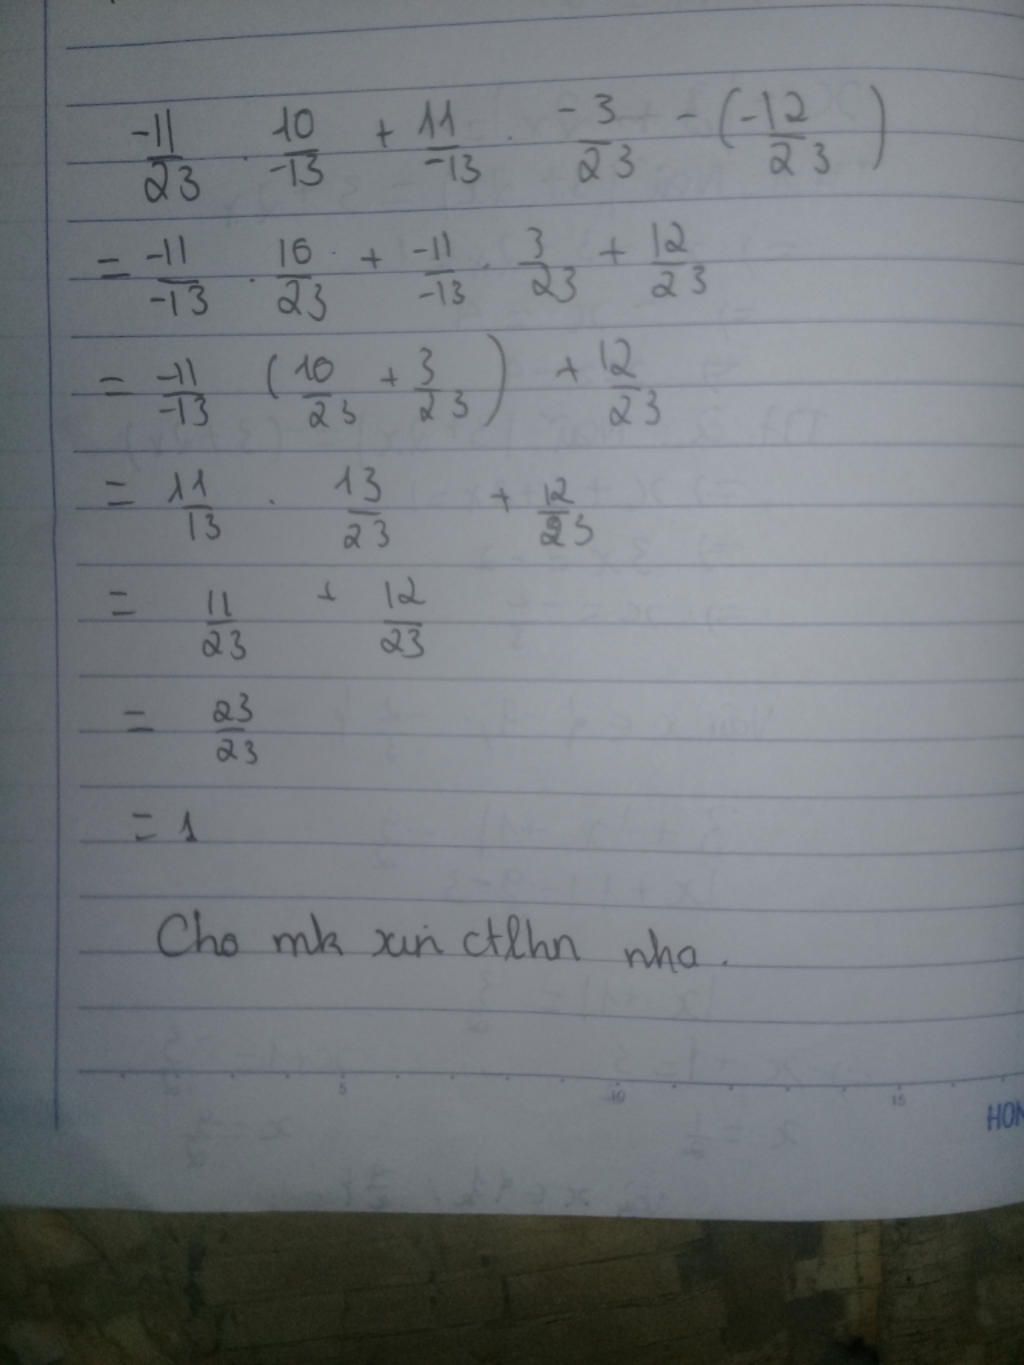 -11/23 . 10/-13 + 11/-13 . -3/23 - (-12/23)
= -11/-13 . 10/23 + -11/-13 . 3/23 + 12/23
= -11/-13 (10/23 + 3/23) + 12/23
= 11/13 . 13/23 + 12/23
= 11/23 + 12/23
= 23/23
= 1
Cho mk xin ctlhn nha.
5 10 15
HON